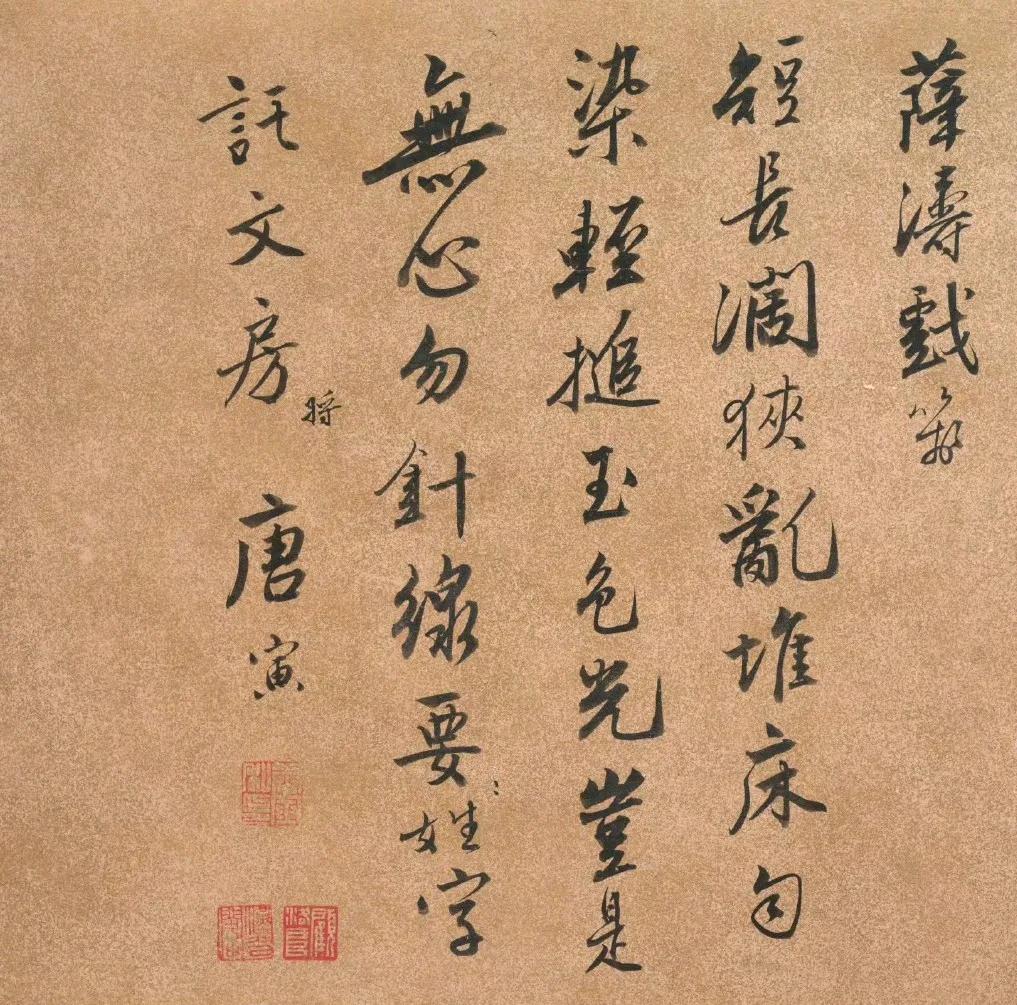 薛濤戲箋
短長濶狹亂堆床勻
染輕搥玉色光豈是
無心勿針線要姓字
託文房將
唐寅